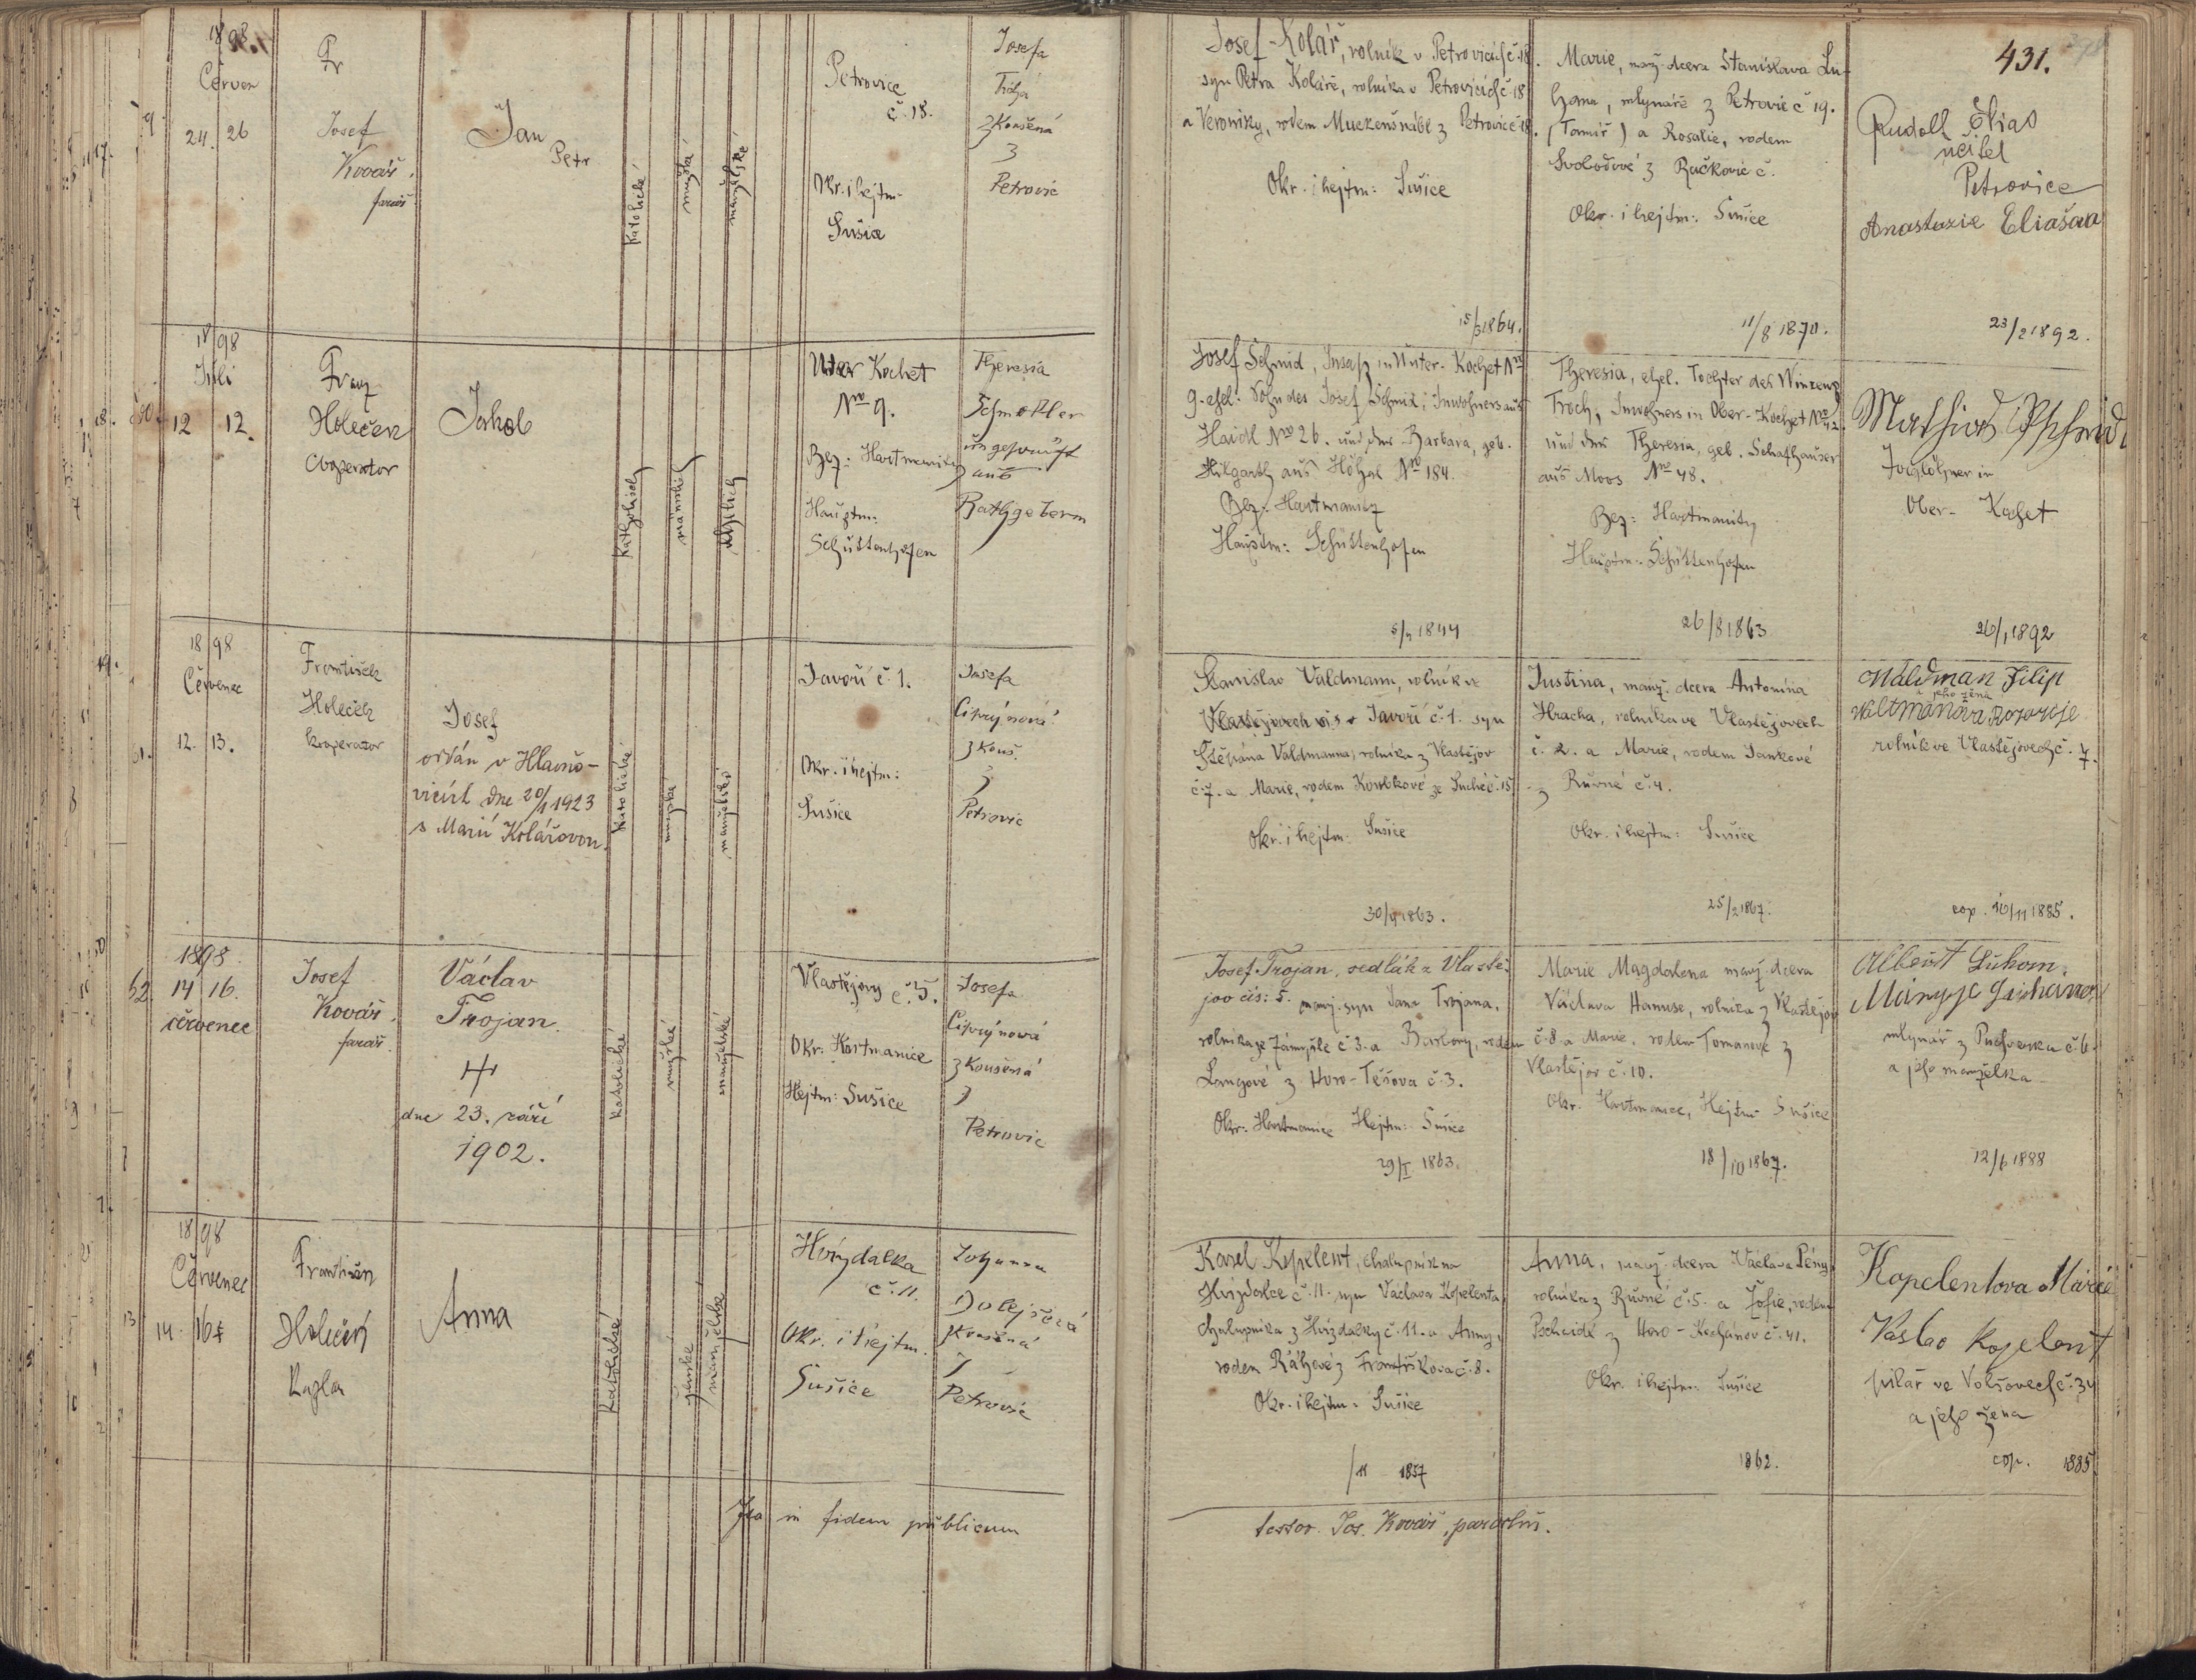 431.
1898
Červen
24. 26
Josef
Kovář
farář
Jan
Petr
katolické
mužské
manželské
Petrovice
č. 18.
Okr. i hejtm.
Sušice
Josefa
zkoušená
z
Petrovic
Josef Kolář, rolník v Petrovicích č. 18.
syn Petra Koláře, rolníka v Petrovicích č. 18
a Veroniky, rodem
z Petrovic č. 18.
Okr. i hejtm: Sušice
15/3 1864.
Marie, manž. dcera Stanislava Lu-
hana, mlynáře z Petrovic č. 19.
a Rosalie, rodem
Svobodové z Račkovic č.
Okr. i hejtm: Sušice
11/8 1870.
Rudolf Elias
učitel
Petrovice
Anastazie Eliašova
23/2 1892.
18.
1898
Juli
12 12.
Franz
Holeček
Cooperator
Jakob
katholisch
männlich
ehelich
Unter Kochet
Nro 9.
Bez: Hartmanitz
Hauptm:
Schüttenhofen
Theresia
ungeprüft
aus
Josef Schmid, Insaß in Unter-Kochet Nro
9. ehel: Sohn des Josef Schmid, Inwohners aus
Haidl Nro 26. und der Barbara, geb.
Hilgarth aus
Nro 184.
Bez: Hartmanitz
Hauptm: Schüttenhofen
5/7 1844
Theresia, ehel. Tochter des Winzenz
Troch, Inwohners in Ober-Kochet Nro 42.
und der Theresia, geb. Schafhauser
aus Moos Nro 48.
Bez: Hartmanitz
Hauptm: Schüttenhofen
26/8 1863
Mathias
Taglöhner in
Ober-Kochet
26/1 1892
19.
1898
Červenec
12. 13.
František
Holeček
kooperator
Josef
oddán v Hlavňo-
vicích dne 20/1 1923
s Marií Kolářovou.
katolické
mužské
manželské
Javoří č. 1.
Okr. i hejtm:
Sušice
Josefa
Ciprýnová
zkouš.
z
Petrovic
Stanislav Valdmann, rolník
Javoří č. 1. syn
Štěpána Valdmanna, rolníka z Vlastějov
č. 7. a Marie, rodem
ze Suché č. 15
Okr. i hejtm. Sušice
30/4 1863.
Justina, manž. dcera Antonína
Hracha, rolníka ve Vlastějovech
č. 2. a Marie, rodem Jankové
z Rovné č. 4.
Okr. i hejtm: Sušice
25/2 1867.
Waldman Filip
a jeho žena
Waltmanova
rolník ve Vlastějovech č. 7.
cop. 16/11 1885.
52.
1898.
14 16.
červenec
Josef
Kovář
farář.
Václav
Trojan.
dne 23. září
1902.
katolické
mužské
manželské
Vlastějovy č. 5.
Okr: Hartmanice
Hejtm: Sušice
Josefa
Ciprýnová
zkoušená
z
Petrovic
Josef Trojan, sedlák z Vlastě-
jov čís: 5. manž. syn Jana Trojana,
rolníka ze Zámyšle č. 3. a Barbory, rodem
Langové z Horo-Těšova č. 3.
Okr: Hartmanice Hejtm: Sušice
29/I 1863.
Marie Magdalena manž. dcera
Václava Hanuse, rolníka z Vlastějov
č. 8. a Marie, rodem Tomanové z
Vlastějov č. 10.
Okr. Hartmanice, Hejtm. Sušice
18/10 1867.
Albert Luhom.
mlynář z
č. 6.
a jeho manželka
12/6 1888
1898
Červenec
14. 16
František
Holeček
Kaplan
Anna
katolické
ženské
manželské
Hvízdalka
č. 11.
Okr. i hejtm.
Sušice
Johanna
Dolejšová
zkoušená
z
Petrovic
Karel Kopelent, chalupník na
Hvízdalce č. 11. syn Václava Kopelenta,
chalupníka z Hvízdalky č. 11. a Anny,
rodem
z Františkova č. 8.
Okr. i hejtm: Sušice
/11 1857
Anna, manž. dcera Václava
rolníka z Rovné č. 5. a Žofie, rodem
Pscheidl z Horo-Kochánov č. 41.
Okr. i hejtm: Sušice
1862.
Kopelentova Marie
Vaslav Kopelent
pilař ve Volšovech č. 34
a jeho žena
cop. 1885.
Ita in fidem publicam
testor. Jos. Kovář, parochus.